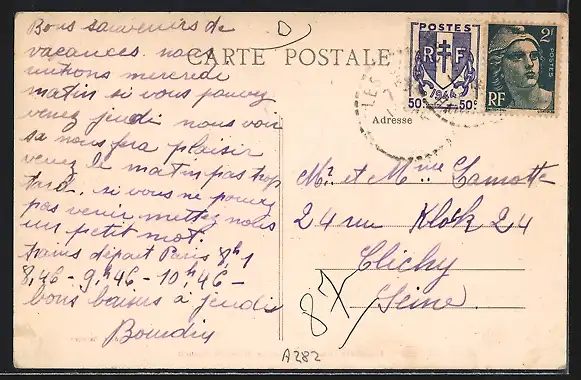 Bons souvenirs de
vacances. nous
rentrons mercredi
matin si vous pouvez
venez jeudi nous voir
sa nous fera plaisir
venez le matin pas trop
tard. si vous ne pouvez
pas venir mettez nous
un petit mot.
trains départ Paris 8h,1
8,46 - 9h46 - 10h,46 -
bons baisers à jeudi
Bourdin
D
CARTE POSTALE
POSTES
RF
1944
50c 50c
2F
POSTES
RF
LES
Adresse
Mr et Mme Lamotte
24 rue Klock 24
Clichy
Seine
87
A282